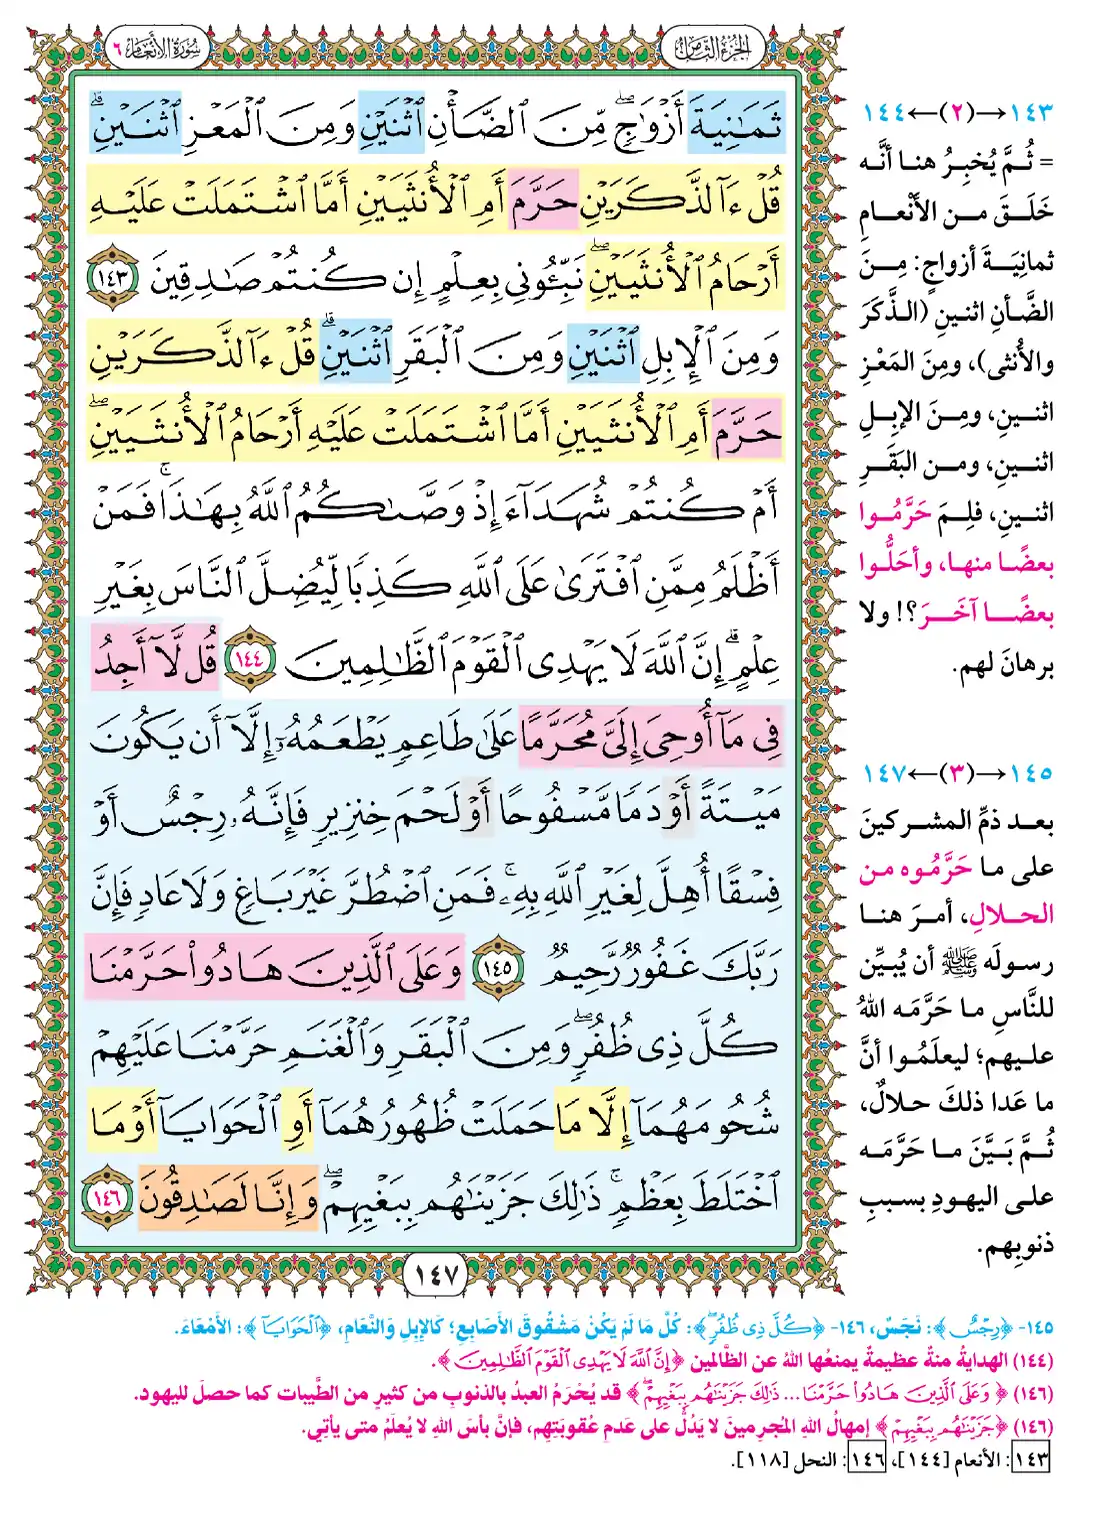 الجزء الثامن
سورة الأنعام ٦
ثَمَٰنِيَةَ أَزْوَٰجٍۖ مِّنَ ٱلضَّأْنِ ٱثْنَيْنِ وَمِنَ ٱلْمَعْزِ ٱثْنَيْنِۗ
قُلْ ءَآلذَّكَرَيْنِ حَرَّمَ أَمِ ٱلْأُنثَيَيْنِ أَمَّا ٱشْتَمَلَتْ عَلَيْهِ
أَرْحَامُ ٱلْأُنثَيَيْنِۖ نَبِّـُٔونِى بِعِلْمٍ إِن كُنتُمْ صَٰدِقِينَ ١٤٣
وَمِنَ ٱلْإِبِلِ ٱثْنَيْنِ وَمِنَ ٱلْبَقَرِ ٱثْنَيْنِۗ قُلْ ءَآلذَّكَرَيْنِ
حَرَّمَ أَمِ ٱلْأُنثَيَيْنِ أَمَّا ٱشْتَمَلَتْ عَلَيْهِ أَرْحَامُ ٱلْأُنثَيَيْنِۖ
أَمْ كُنتُمْ شُهَدَآءَ إِذْ وَصَّىٰكُمُ ٱللَّهُ بِهَٰذَاۚ فَمَنْ
أَظْلَمُ مِمَّنِ ٱفْتَرَىٰ عَلَى ٱللَّهِ كَذِبًا لِّيُضِلَّ ٱلنَّاسَ بِغَيْرِ
عِلْمٍۗ إِنَّ ٱللَّهَ لَا يَهْدِى ٱلْقَوْمَ ٱلظَّٰلِمِينَ ١٤٤ قُل لَّآ أَجِدُ
فِى مَآ أُوحِىَ إِلَىَّ مُحَرَّمًا عَلَىٰ طَاعِمٍ يَطْعَمُهُۥٓ إِلَّآ أَن يَكُونَ
مَيْتَةً أَوْ دَمًا مَّسْفُوحًا أَوْ لَحْمَ خِنزِيرٍ فَإِنَّهُۥ رِجْسٌ أَوْ
فِسْقًا أُهِلَّ لِغَيْرِ ٱللَّهِ بِهِۦۚ فَمَنِ ٱضْطُرَّ غَيْرَ بَاغٍ وَلَا عَادٍ فَإِنَّ
رَبَّكَ غَفُورٌ رَّحِيمٌ ١٤٥ وَعَلَى ٱلَّذِينَ هَادُوا۟ حَرَّمْنَا
كُلَّ ذِى ظُفُرٍۖ وَمِنَ ٱلْبَقَرِ وَٱلْغَنَمِ حَرَّمْنَا عَلَيْهِمْ
شُحُومَهُمَآ إِلَّا مَا حَمَلَتْ ظُهُورُهُمَآ أَوِ ٱلْحَوَايَآ أَوْ مَا
ٱخْتَلَطَ بِعَظْمٍۚ ذَٰلِكَ جَزَيْنَٰهُم بِبَغْيِهِمْۖ وَإِنَّا لَصَٰدِقُونَ ١٤٦
١٤٧
١٤٣→(٢)←١٤٤
= ثُمَّ يُخبِرُ هنا أنَّه
خَلَقَ من الأنْعامِ
ثمانِيَةَ أزواجٍ: مِنَ
الضَّأنِ اثنينِ (الذَّكَرَ
والأُنثى)، ومِنَ المَعْزِ
اثنينِ، ومِنَ الإبِلِ
اثنينِ، ومن البَقَرِ
اثنينِ، فلِمَ حَرَّمُوا
بعضًا منها، وأحَلُّوا
بعضًا آخَرَ؟! ولا
برهانَ لهم.
١٤٥→(٣)←١٤٧
بعد ذمِّ المشركينَ
على ما حَرَّمُوه من
الحلالِ، أمرَ هنا
رسولَه ﷺ أن يُبيِّن
للنَّاسِ ما حَرَّمَه اللهُ
عليهم؛ ليعلَمُوا أنَّ
ما عَدا ذلكَ حلالٌ،
ثُمَّ بَيَّنَ ما حَرَّمَه
على اليهودِ بسببِ
ذنوبِهم.
١٤٥- ﴿رِجْسٌ﴾: نَجَسٌ، ١٤٦- ﴿كُلَّ ذِى ظُفُرٍۖ﴾: كُلَّ مَا لَمْ يَكُنْ مَشْقُوقَ الأَصَابِعِ؛ كَالإِبِلِ وَالنَّعَامِ، ﴿ٱلْحَوَايَآ﴾: الأَمْعَاءَ.
(١٤٤) الهدايةُ منةٌ عظيمةٌ يمنعُها اللهُ عن الظَّالمين ﴿إِنَّ ٱللَّهَ لَا يَهْدِى ٱلْقَوْمَ ٱلظَّٰلِمِينَ﴾.
(١٤٦) ﴿وَعَلَى ٱلَّذِينَ هَادُوا۟ حَرَّمْنَا ... ذَٰلِكَ جَزَيْنَٰهُم بِبَغْيِهِمْۖ﴾ قد يُحْرَمُ العبدُ بالذنوبِ من كثيرٍ من الطَّيبات كما حصلَ لليهود.
(١٤٦) ﴿جَزَيْنَٰهُم بِبَغْيِهِمْ﴾ إمهالُ اللهِ المُجرِمينَ لا يَدُلُّ على عَدمِ عُقوبَتِهِم، فإنَّ بأسَ اللهِ لا يُعلَمُ متى يأتِي.
١٤٣: الأنعام [١٤٤]، ١٤٦: النحل [١١٨].